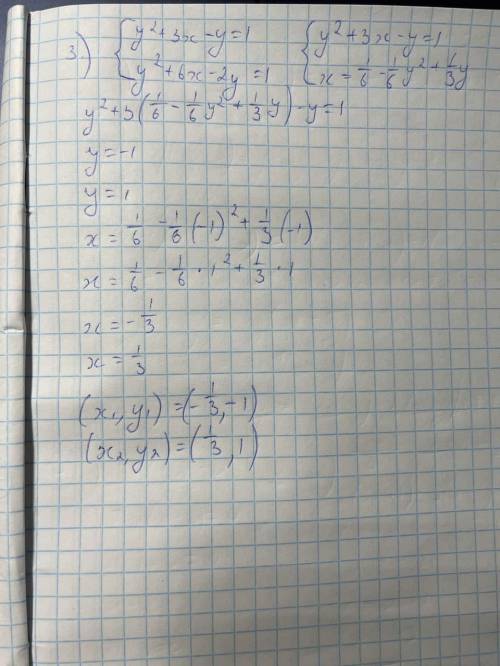 3.) { y² + 3x - y = 1    { y² + 3x - y = 1
{ y² + 6x - 2y = 1    { x = 1/6 - 1/6 y² + 1/3 y
y² + 3(1/6 - 1/6 y² + 1/3 y) - y = 1
y = -1
y = 1
x = 1/6 - 1/6 (-1)² + 1/3 (-1)
x = 1/6 - 1/6 · 1² + 1/3 · 1
x = - 1/3
x = 1/3
(x₁, y₁) = (- 1/3, -1)
(x₂, y₂) = (1/3, 1)